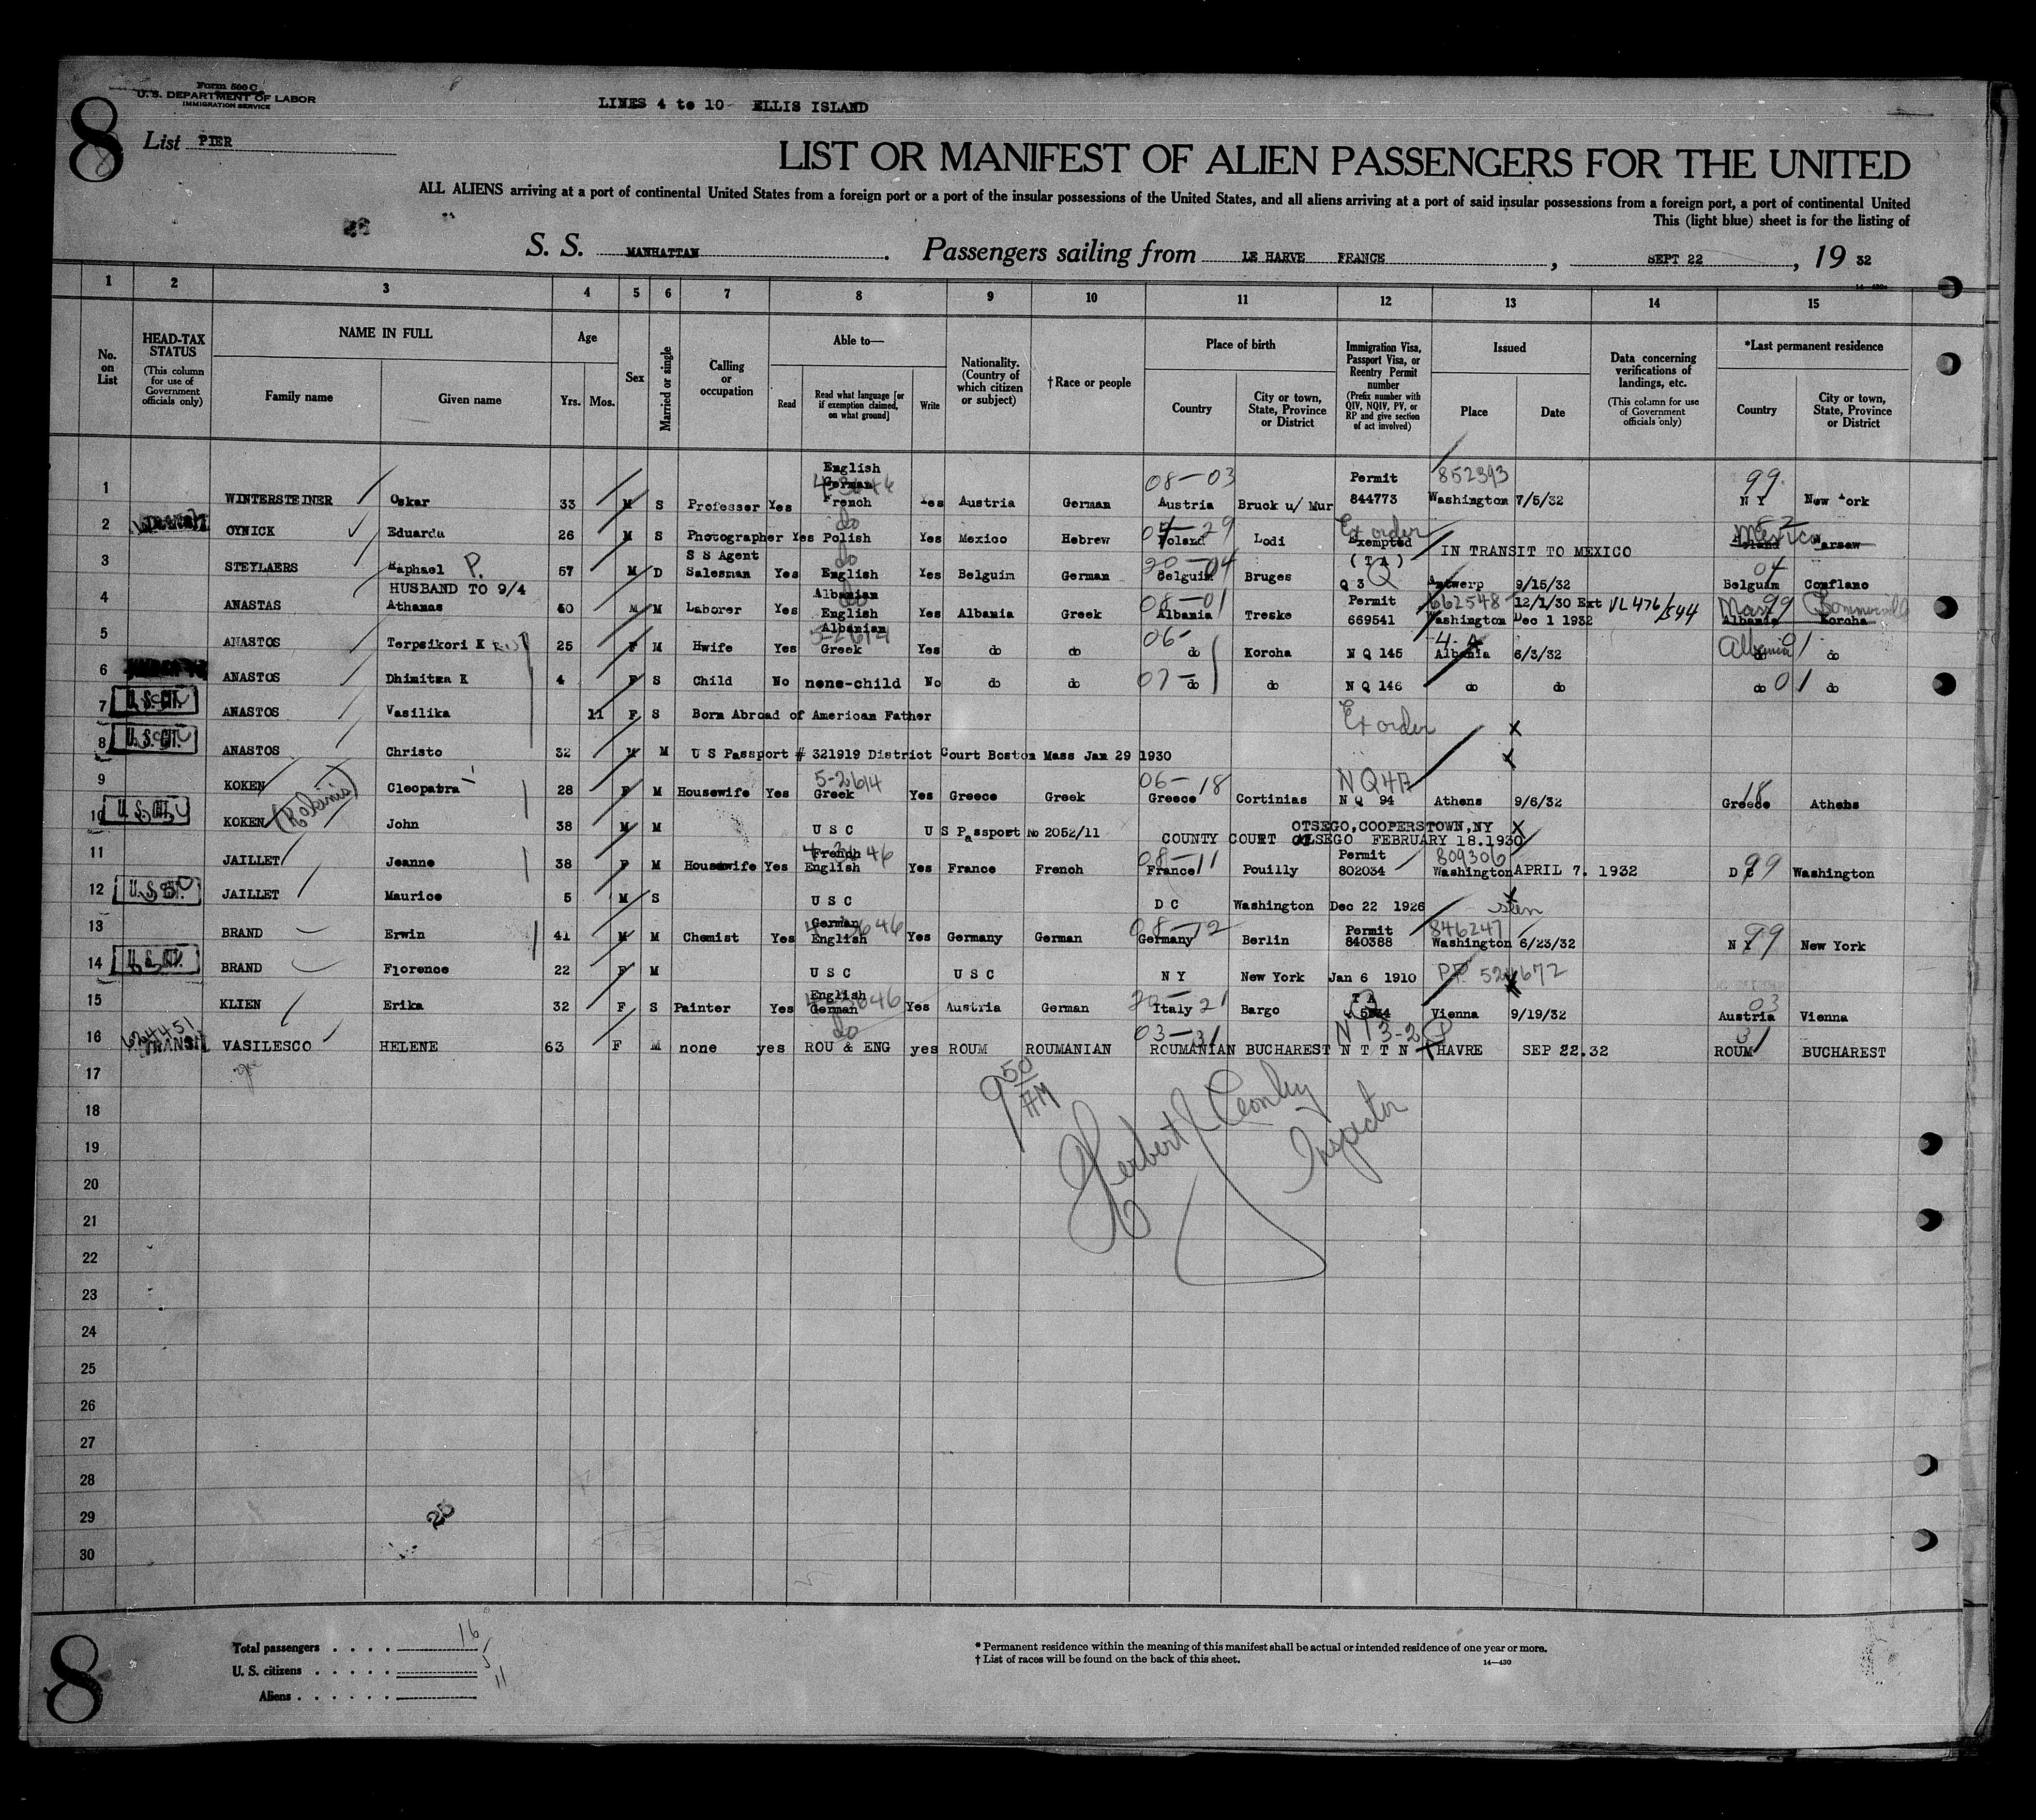 Form 500 C
U. S. DEPARTMENT OF LABOR
IMMIGRATION SERVICE
LINES 4 to 10 ELLIS ISLAND
8
List PIER
LIST OR MANIFEST OF ALIEN PASSENGERS FOR THE UNITED
ALL ALIENS arriving at a port of continental United States from a foreign port or a port of the insular possessions of the United States, and all aliens arriving at a port of said insular possessions from a foreign port, a port of continental United
This (light blue) sheet is for the listing of
S. S. MANHATTAN. Passengers sailing from LE HARVE FRANCE, SEPT 22, 19 32
1 2 3 4 5 6 7 8 9 10 11 12 13 14 15
No. on List
HEAD-TAX STATUS (This column for use of Government officials only)
NAME IN FULL
Family name Given name
Age
Yrs. Mos.
Sex
Married or single
Calling or occupation
Able to—
Read Read what language [or if exemption claimed, on what ground] Write
Nationality. (Country of which citizen or subject)
†Race or people
Place of birth
Country City or town, State, Province or District
Immigration Visa, Passport Visa, or Reentry Permit number (Prefix number with QIV, NQIV, PV, or RP and give section of act involved)
Issued
Place Date
Data concerning verifications of landings, etc. (This column for use of Government officials only)
*Last permanent residence
Country City or town, State, Province or District
English German 08-03 Permit 852393 99
1 WINTERSTEINER Oskar 33 M S Professor Yes French Yes Austria German Austria Bruck u/ Mur 844773 Washington 7/5/32 N Y New York
do Ex order Mexico
2 OYNICK Eduarda 26 M S Photographer Yes Polish Yes Mexico Hebrew Poland Lodi Exempted IN TRANSIT TO MEXICO Poland Warsaw
S S Agent do 20-04 (T A) 04
3 STEYLAERS Raphael P. 57 M D Salesman Yes English Yes Belguim German Belguim Bruges Q 3 Antwerp 9/15/32 Belguim Conflans
HUSBAND TO 9/4 Albanian 08-01 Permit 662548 12/1/30 Ext VL 476/594 Mass 99
4 ANASTAS Athanas 50 M M Laborer Yes English Yes Albania Greek Albania Treske 669541 Washington Dec 1 1932 Albania Korcha
Albanian 06- Albania 01
5 ANASTOS Terpsikori K 25 F M Hwife Yes Greek Yes do do do Korcha N Q 145 Albania 6/3/32 do do
6 ANASTOS Dhimitra K 4 F S Child No none-child No do do 07- do do N Q 146 do do do 01 do
7 U.S. CIT. ANASTOS Vasilika 11 F S Born Abroad of American Father Ex order X
8 U.S. CIT. ANASTOS Christo 32 M M U S Passport # 321919 District Court Boston Mass Jan 29 1930 X
5-2614 06-18 NQ47 18
9 KOKEN Cleopatra 28 F M Housewife Yes Greek Yes Greece Greek Greece Cortinias N Q 94 Athens 9/6/32 Greece Athens
OTSEGO, COOPERSTOWN, NY X
10 U.S. CIT. KOKEN John 38 M M U S C U S Passport No 2052/11 COUNTY COURT OTSEGO FEBRUARY 18.1930
French 08-11 Permit 809306 99
11 JAILLET Jeanne 38 F M Housewife Yes English Yes France French France Pouilly 802034 Washington APRIL 7. 1932 D C Washington
12 JAILLET Maurice 5 M S U S C D C Washington Dec 22 1926
German 08-12 Permit 846247 99
13 BRAND Erwin 41 M M Chemist Yes English Yes Germany German Germany Berlin 840388 Washington 6/23/32 N Y New York
14 U.S. CIT. BRAND Florence 22 F M U S C U S C N Y New York Jan 6 1910 PP 524672
English 20-21 T A 03
15 KLIEN Erika 32 F S Painter Yes German Yes Austria German Italy Bargo Vienna 9/19/32 Austria Vienna
624451 do 03-31 N 13-2 31
16 TRANSIT VASILESCO HELENE 63 F M none yes ROU & ENG yes ROUM ROUMANIAN ROUMANIAN BUCHAREST N T T N HAVRE SEP 22.32 ROUM BUCHAREST
17
9 50 AM
18
Herbert
19
Inspector
20
21
22
23
24
25
26
27
28
29
30
25
8
Total passengers . . . . 16
U. S. citizens . . . . . 5
Aliens . . . . . . 11
* Permanent residence within the meaning of this manifest shall be actual or intended residence of one year or more.
† List of races will be found on the back of this sheet. 14—430